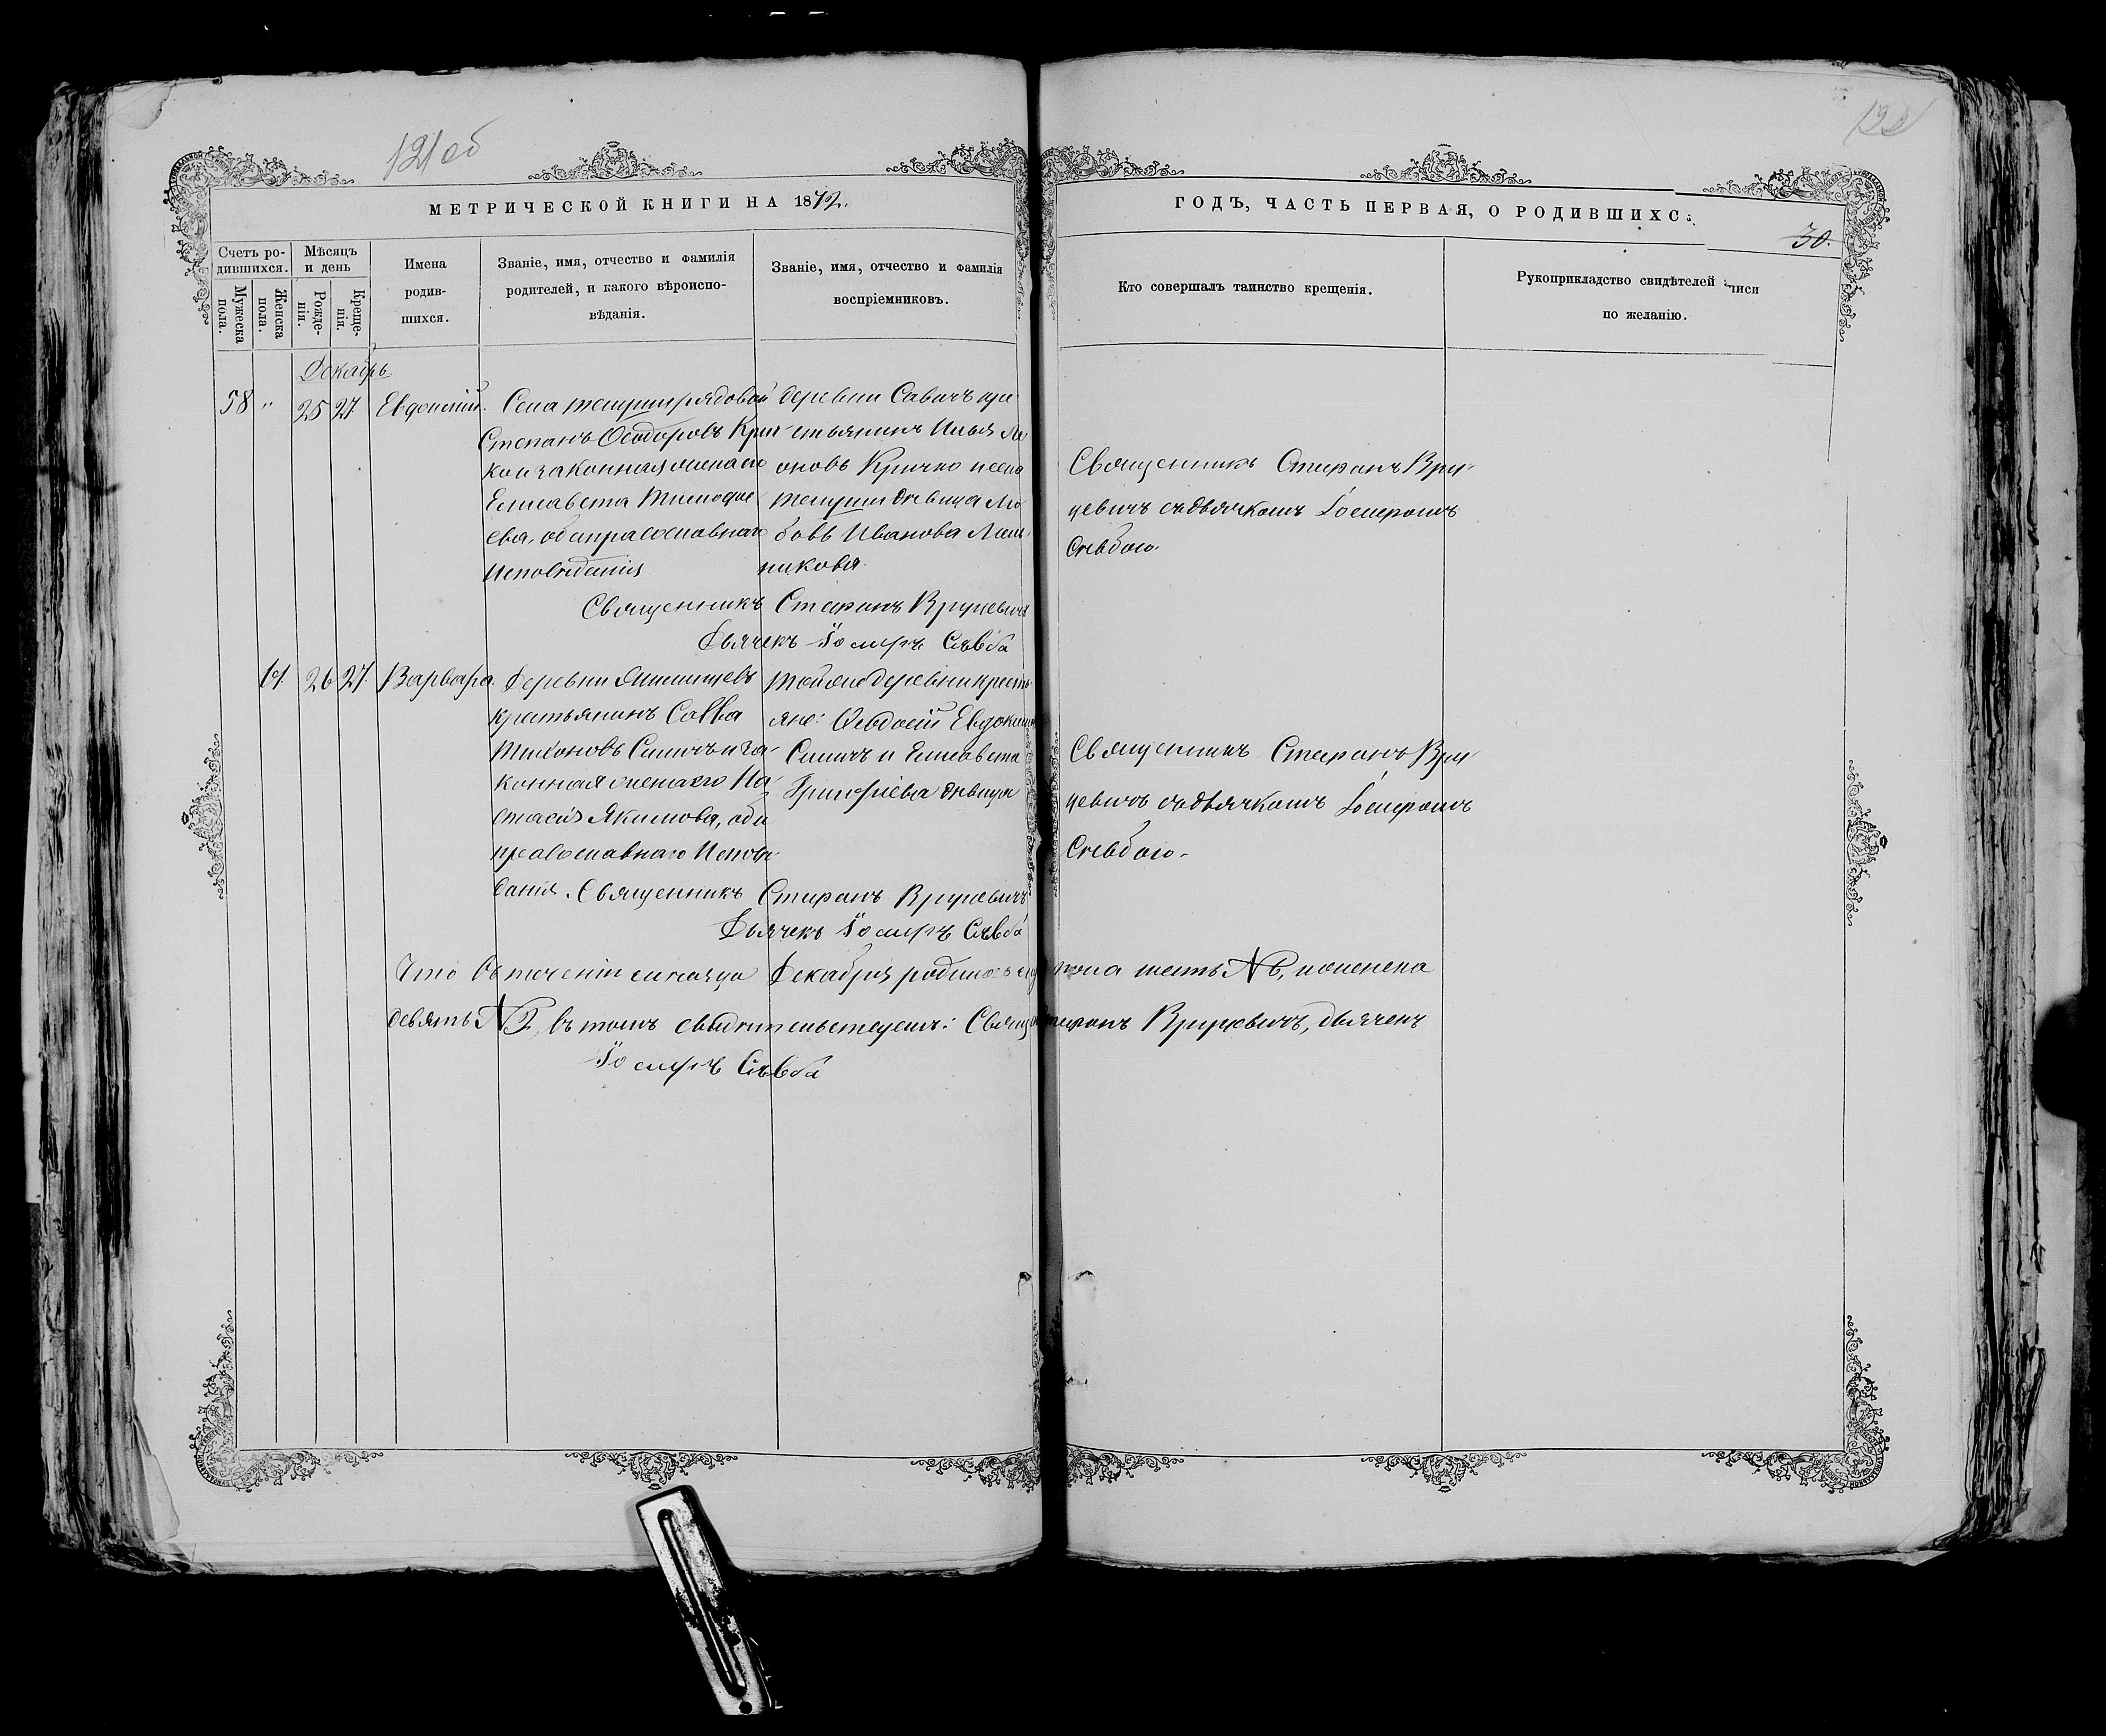 121 об
МЕТРИЧЕСКОЙ КНИГИ НА 1872.
ГОДЪ, ЧАСТЬ ПЕРВАЯ, О РОДИВШИХС
30.
Счетъ ро-
дившихся.
Мужеска пола.
Женска пола.
Мѣсяцъ
и день
Рожде-
нія.
Креще-
нія.
Имена
родив-
шихся.
Званіе, имя, отчество и фамилія
родителей, и какого вѣроиспо-
вѣданія.
Званіе, имя, отчество и фамилія
воспріемниковъ.
Кто совершалъ таинство крещенія.
Рукоприкладство свидѣтелей писи
по желанію.
Декабрь
58 " 25 27 Евдокимъ.
Села рядовой
Степанъ Ѳеодоровъ Крич-
ко и законная жена его
Елисавета Тимоѳе-
ева, оба православнаго
Исповѣданія
деревни Савичъ кре-
стьянинъ Илья
оновъ Кричко и села
дѣвица Лю-
бовь Иванова Мель-
никова.
Священникъ Стефанъ
цевичъ съ дьячкомъ Іосифомъ
Священникъ Стефанъ
Дьячекъ Іосифъ
26 27. Варвара.
Деревни
крестьянинъ Савва
Тихоновъ Симичъ и за-
конная жена его На-
стасія Якимова, оба
православнаго Исповѣ-
данія.
той же деревни кресть-
яне: Ѳеодосій Евдокимовъ
Симичъ и Елисавета
Григоріева дѣвица
Священникъ Стефанъ
цевичъ съ дьячкомъ Іосифомъ
Священникъ Стефанъ
Дьячекъ Іосифъ
Что въ теченіи мѣсяца Декабря родилось пола шесть № 6, женска
девять № 9, въ томъ свидѣтельствуемъ: Свящ. Стефанъ дьячекъ
Іосифъ